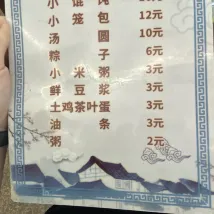 小馄饨 元
小笼包 12元
汤圆 10元
粽子 6元
小米粥 3元
鲜豆浆 3元
土鸡茶叶蛋 3元
油条 3元
粥 2元